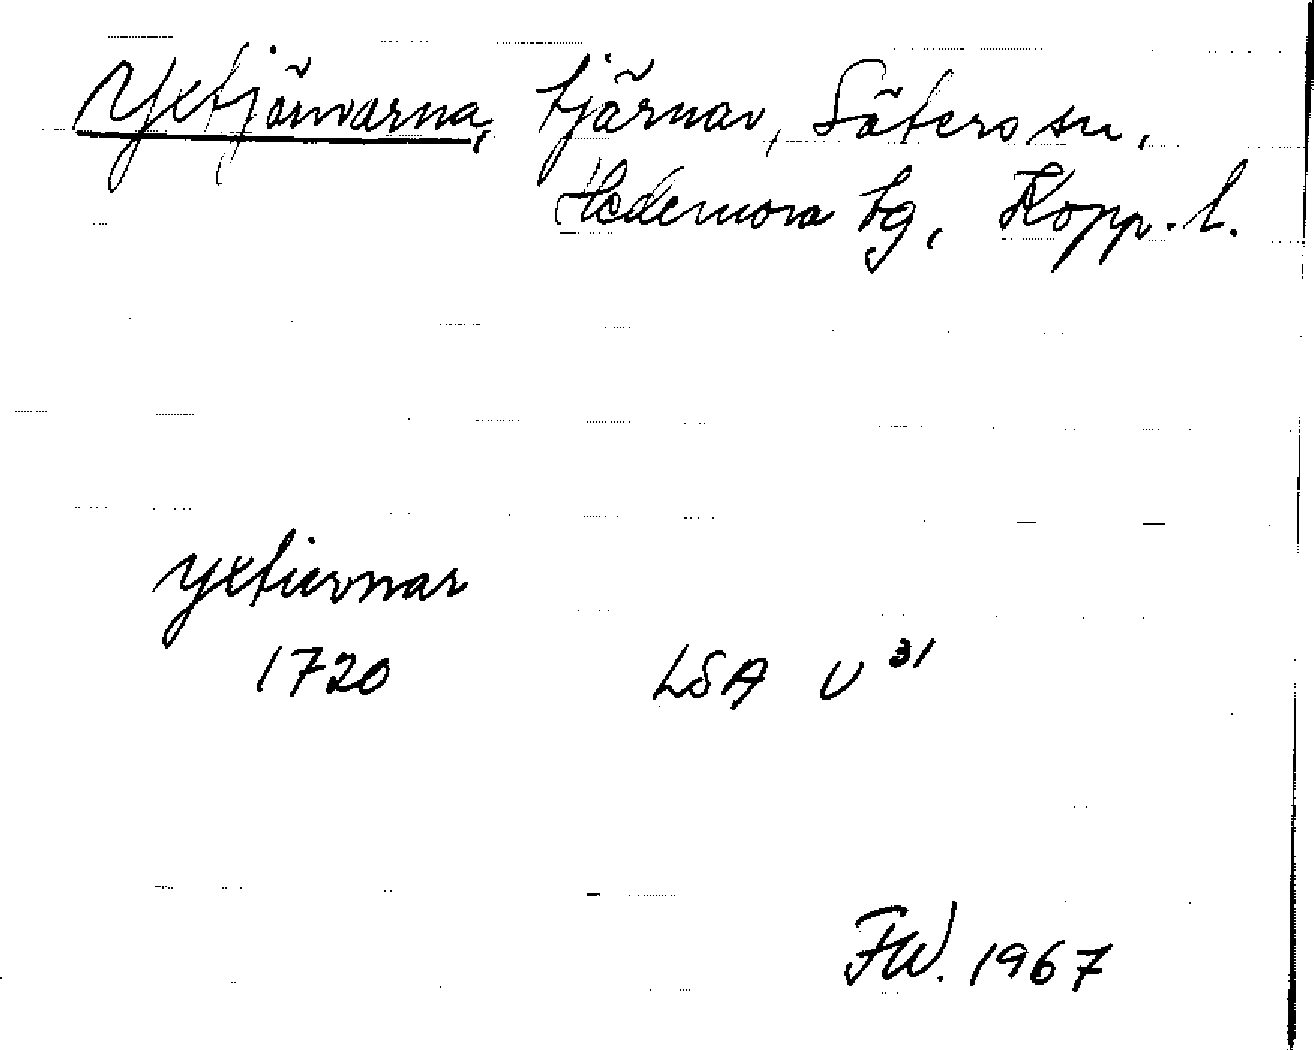 Yxtjärnarna, tjärnar, Säters sn,
Hedemora tg, Kopp. l.
yxtiernar
1720 LSA U 31
FW. 1967